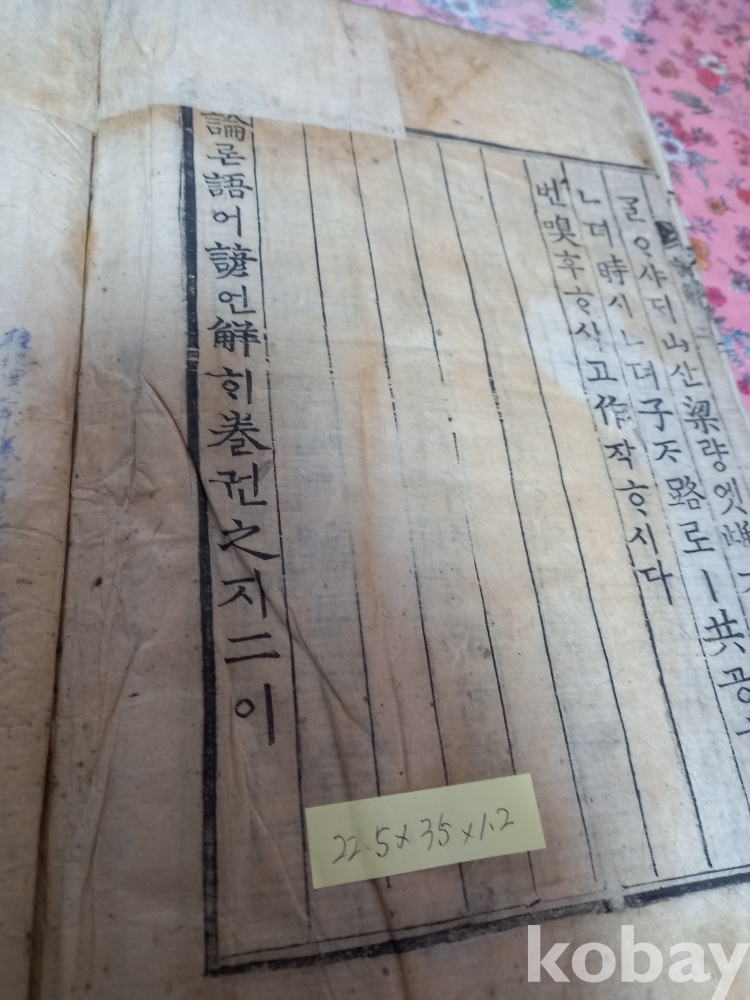 ᄀᆞᆯᄋᆞ샤ᄃᆡ山산梁량엣
ㄴ뎌時시ㄴ뎌子ᄌᆞ路로ㅣ共공
번嗅후ᄒᆞ시고作작ᄒᆞ시다
論론語어諺언解ᄒᆡ卷권之지二이
22.5x35x1.2
kobay